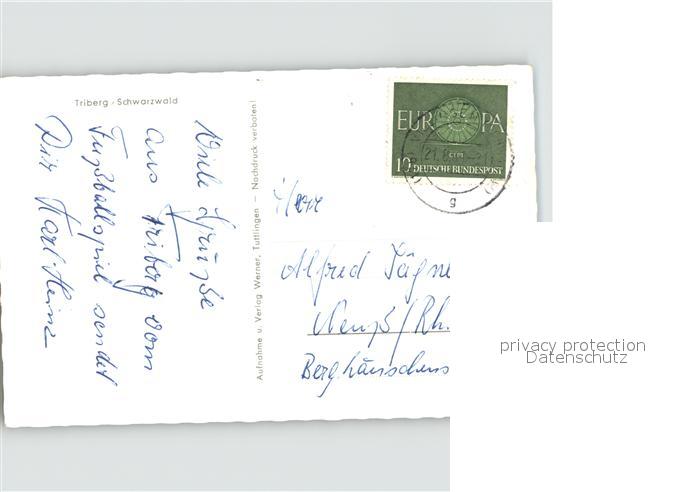 Triberg - Schwarzwald
Viele Grüße
aus Triberg vom
Fußballspiel sendet
Dir Karl-Heinz
Aufnahme u. Verlag Werner, Tuttlingen — Nachdruck verboten!
EUROPA
CEPT
10 DEUTSCHE BUNDESPOST
21.8
g
Herr
Alfred
Neuß/Rh.
privacy protection
Datenschutz